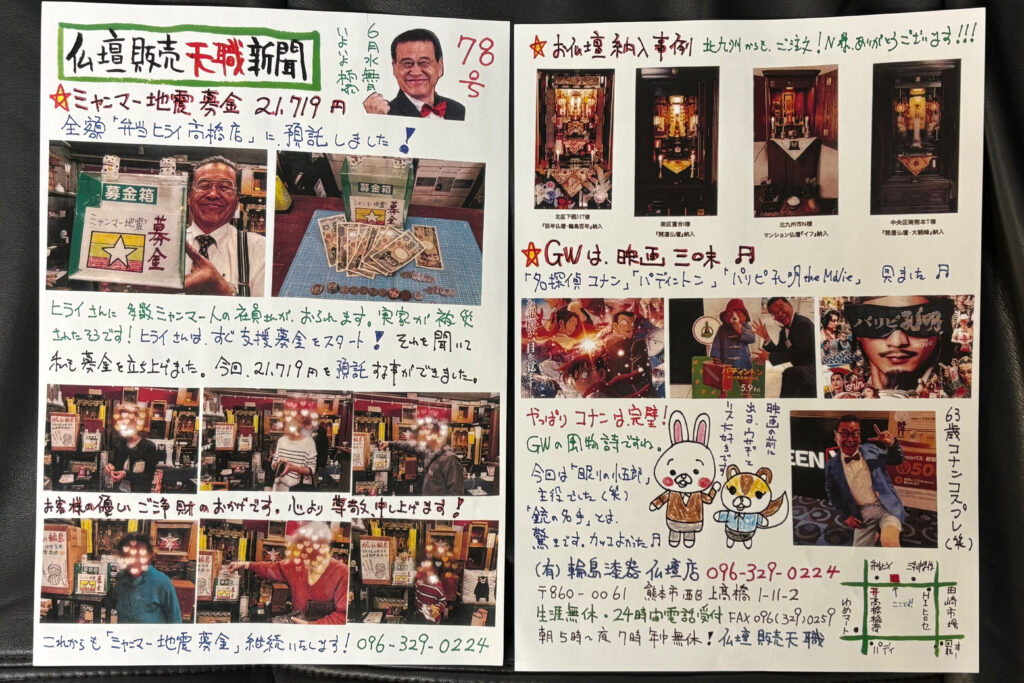 仏壇販売天職新聞
6月水無月
いよいよ
78号
☆ミャンマー地震募金 21,719円
全額「弁当ヒライ高橋店」に、預託しました!
募金箱
ミャンマー地震
募金
募金箱
ミャンマー地震
募金
ヒライさんに多数ミャンマー人の社員さんが、おられます。実家が被災
されたそうです!ヒライさんは、すぐ支援募金をスタート!それを聞いて
私も募金を立ち上げました。今回、21,719円を預託する事ができました。
お客様の優しいご浄財のおかげです。心より尊敬申し上げます!
これからも「ミャンマー地震募金」継続いたします!096-329-0224
☆お仏壇納入事例 北九州からも、ご注文!N様、ありがとうございます!!!
北区下硯川T様
『百年仏壇・輪島百年』納入
南区富合I様
『開運仏壇』納入
北九州市N様
マンション仏壇『イフ』納入
中央区南熊本T様
『開運仏壇・大観峰』納入
☆GWは、映画三昧♬
「名探偵コナン」「パディントン」「パリピ孔明 the Movie」見ました♬
パディントン
5.9
パリピ孔明
やっぱりコナンは、完璧!
GWの風物詩ですね。
今回は「眠りの小五郎」
主役でした(笑)
「銃の名手」とは、
驚きです。カッコよかった♬
映画の前に
出会、ウサギと
リス大好きです
63歳コナンコスプレ(笑)
(有)輪島漆器仏壇店 096-329-0224
〒860-0061 熊本市西区上高橋1-11-2
生涯無休・24時間電話受付 FAX096(329)0259
朝5時~夜7時年中無休!仏壇販売天職
ここ
高橋稲荷
ゆめマート
田崎市場
パディ